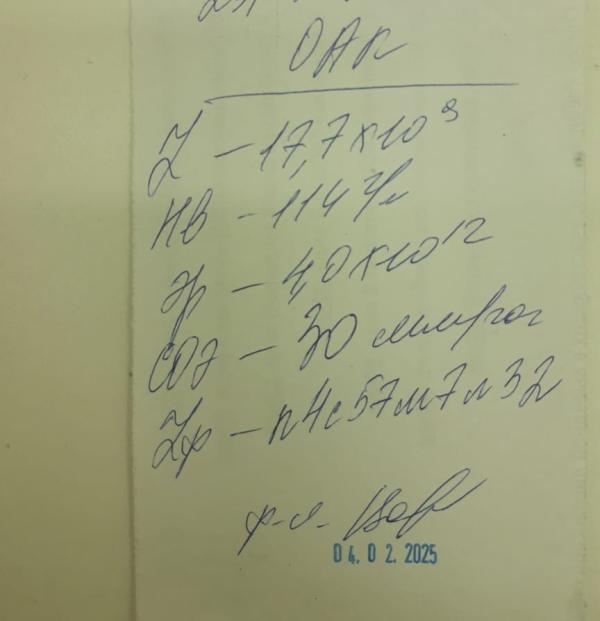 ОАК
L – 17,7×10⁹
Hb – 114 г/л
Эр – 4,0×10¹²
СОЭ – 30 мм/час
Lф – п4с57м7л32
ф-л-
04.02.2025